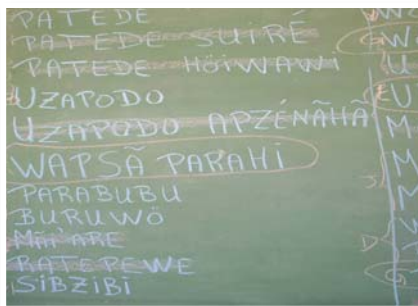 PATEDE
PATEDE SUIRÉ
PATEDE HÖIWAWI
UZAPODO
UZAPODO APZÉNÃHÃ
WAPSÃ PARAHI
PARABUBU
BURUWÖ
RATEPEWE
SIBZIBI